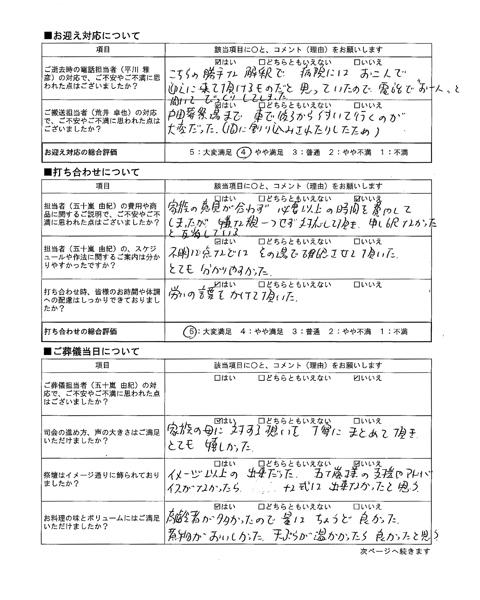 ■お迎え対応について
項目
該当項目に○と、コメント（理由）をお願いします
ご逝去時の電話担当者（平川 雅彦）の対応で、ご不安やご不満に思われた点はございましたか？
☑はい □どちらともいえない □いいえ
こちらの勝手な解釈で 病院には お二人で
迎えに来て頂けるものだと思っていたので 電話で お一人、と
聞いて びっくりしました
ご搬送担当者（荒井 卓也）の対応で、ご不安やご不満に思われた点はございましたか？
斎場まで 車で後からついて行くのが
大変だった（間に割り込みされたりしたため）
お迎え対応の総合評価
5：大変満足 ④やや満足 3：普通 2：やや不満 1：不満
■打ち合わせについて
項目
該当項目に○と、コメント（理由）をお願いします
担当者（五十嵐 由紀）の費用や商品に関するご説明で、ご不安やご不満に思われた点はございましたか？
□はい □どちらともいえない ☑いいえ
家族の意見が合わず 必要以上の時間を
しましたが 嫌な顔一つせず 対応して頂き 申し訳なかった
担当者（五十嵐 由紀）の、スケジュールや作法に関するご案内は分かりやすかったですか？
☑はい □どちらともいえない □いいえ
不明な点などは その場で確認させて頂いた
とても 分かりやすかった
打ち合わせ時、皆様のお時間や体調への配慮はしっかりできておりましたか？
☑はい □どちらともいえない □いいえ
労いの言葉をかけて頂いた
打ち合わせの総合評価
⑤：大変満足 4：やや満足 3：普通 2：やや不満 1：不満
■ご葬儀当日について
項目
該当項目に○と、コメント（理由）をお願いします
ご葬儀担当者（五十嵐 由紀）の対応で、ご不安やご不満に思われた点はございましたか？
□はい □どちらともいえない ☑いいえ
司会の進め方、声の大きさはご満足いただけましたか？
☑はい □どちらともいえない □いいえ
家族の母に対する想いを 丁寧に まとめて頂き
とても 嬉しかった
祭壇はイメージ通りに飾られておりましたか？
☑はい □どちらともいえない □いいえ
イメージ以上の 出来だった. 五十嵐様の支援やアドバ
イスがなかったら 式は 出来なかったと思う
お料理の味とボリュームにはご満足いただけましたか？
☑はい □どちらともいえない □いいえ
高齢者が多かったので 量は ちょうど 良かった.
煮物がおいしかった. 天ぷらが温かかったら 良かったと思う
次ページへ続きます